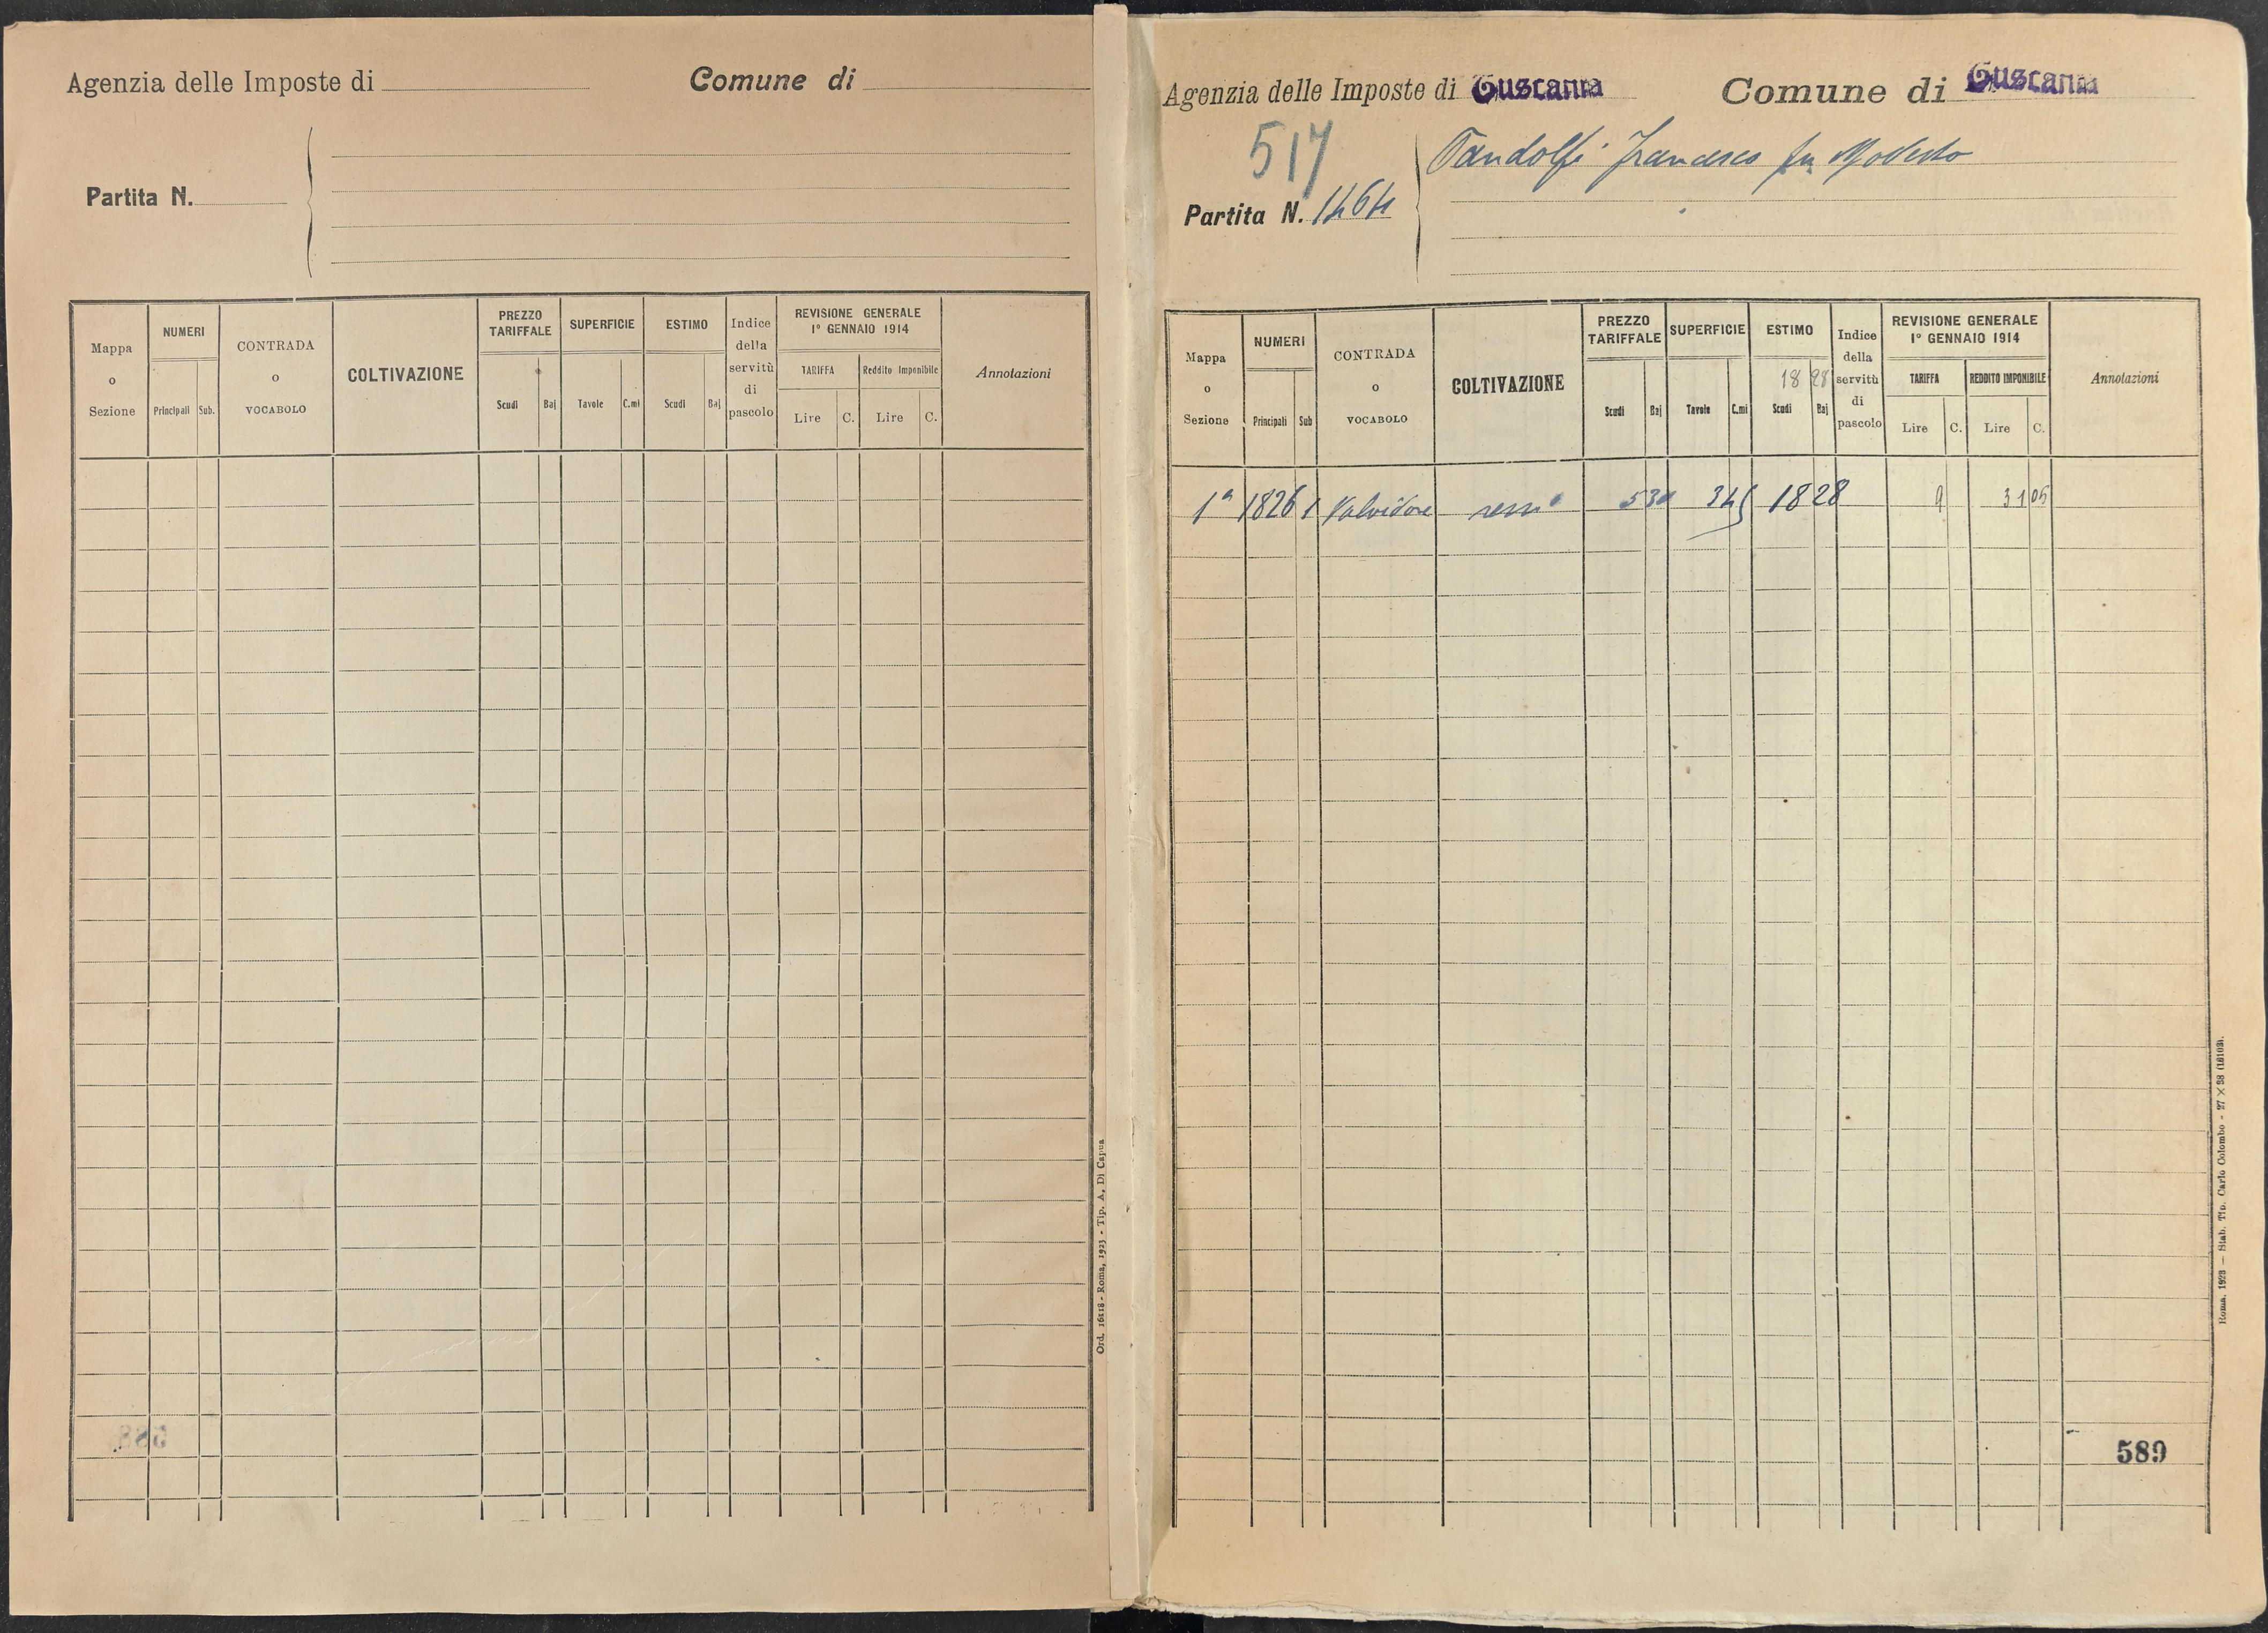 Agenzia delle Imposte di
Comune di
Partita N.
Mappa o Sezione
NUMERI
Principali Sub.
CONTRADA o VOCABOLO
COLTIVAZIONE
PREZZO TARIFFALE
Scudi Baj
SUPERFICIE
Tavole C.mi
ESTIMO
Scudi Baj
Indice della servitù di pascolo
REVISIONE GENERALE
1° GENNAIO 1914
TARIFFA
Lire C.
Reddito Imponibile
Lire C.
Annotazioni
Ord. 16118 - Roma, 1923 - Tip. A. Di Capua
Agenzia delle Imposte di Tuscania
Comune di Tuscania
517
Partita N. 1464
Pandolfi Francesco fu Modesto
Mappa o Sezione
NUMERI
Principali Sub
CONTRADA o VOCABOLO
COLTIVAZIONE
PREZZO TARIFFALE
Scudi Baj
SUPERFICIE
Tavole C.mi
ESTIMO
18 28
Scudi Baj
Indice della servitù di pascolo
REVISIONE GENERALE
1° GENNAIO 1914
TARIFFA
Lire C.
REDDITO IMPONIBILE
Lire C.
Annotazioni
1ª 1826 1 Valvidone 530 345 1828 9 31 05
589
Roma, 1923 — Stab. Tip. Carlo Colombo - 27 × 38 (16103).